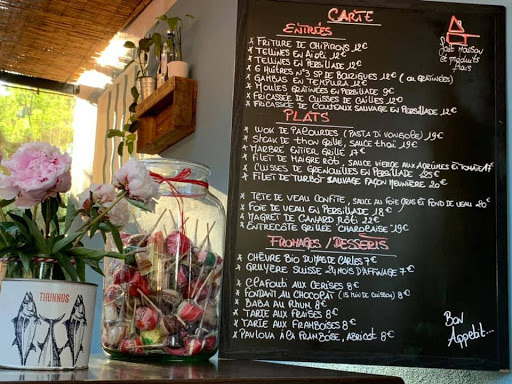 CARTE
ENTRÉES
* FRITURE DE CHIPIRONS 12€
* TELLINES EN AÏOLI 12€
* TELLINES EN PERSILLADE 12€
* 6 HUÎTRES N°3 SP DE BOUZIGUES 12€ (OU GRATINÉES)
* GAMBAS EN TEMPURA 12€
* MOULES GRATINÉES EN PERSILLADE 9€
* FRICASSÉE DE CUISSES DE CAILLES 12€
* FRICASSÉE DE COUTEAUX SAUVAGE EN PERSILLADE 12€
Fait maison
et produits
frais
PLATS
* WOK DE PALOURDES (PASTA DI VONGOLE) 19€
* STEAK DE THON GRILLÉ, SAUCE THAÏ 19€
* MARBRÉ ENTIER GRILLÉ 17€
* FILET DE MAIGRE RÔTI, SAUCE VIERGE AUX AGRUMES ET TOMATE 17€
* CUISSES DE GRENOUILLES EN PERSILLADE 25€
* FILET DE TURBOT SAUVAGE FAÇON MEUNIÈRE 20€
* TÊTE DE VEAU CONFITE, SAUCE AU FOIE GRAS ET FOND DE VEAU 20€
* FOIE DE VEAU EN PERSILLADE 18€
* MAGRET DE CANARD RÔTI 18€
* ENTRECÔTE GRILLÉE "CHAROLAISE" 19€
FROMAGES / DESSERTS
* CHÈVRE BIO DU MAS DE CARLES 7€
* GRUYÈRE SUISSE 24 MOIS D'AFFINAGE 7€
* CLAFOUTI AUX CERISES 8€
* FONDANT AU CHOCOLAT (15 MIN DE CUISSON) 8€
* BABA AU RHUM 8€
* TARTE AUX FRAISES 8€
* TARTE AUX FRAMBOISES 8€
* PAVLOVA À LA FRAMBOISE, ABRICOT 8€
Bon
Appetit...
THUNNUS